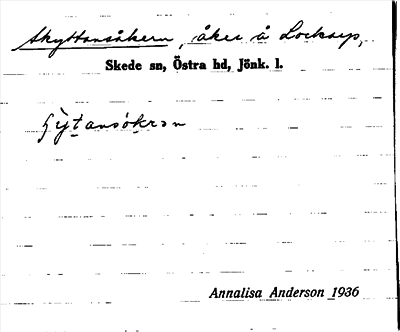 Skyttansåkern, åker å Lockarp,
Skede sn, Östra hd, Jönk. l.
ʃy̨tansókrən
Annalisa Anderson 1936